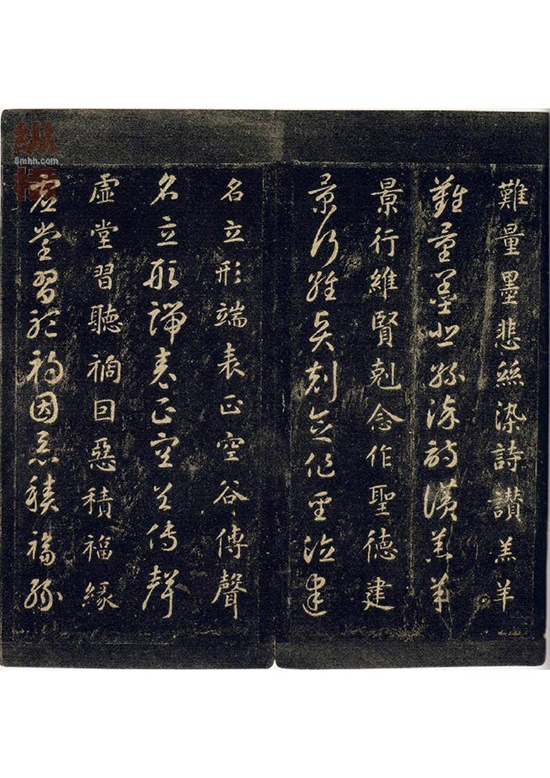 難量墨悲絲染詩讃羔羊
難量墨悲絲染詩讃羔羊
景行維賢剋念作聖德建
景行維賢剋念作聖德建
名立形端表正空谷傳聲
名立形端表正空谷傳聲
虛堂習聽禍因惡積福緣
虛堂習聽禍因惡積福緣
8mhh.com